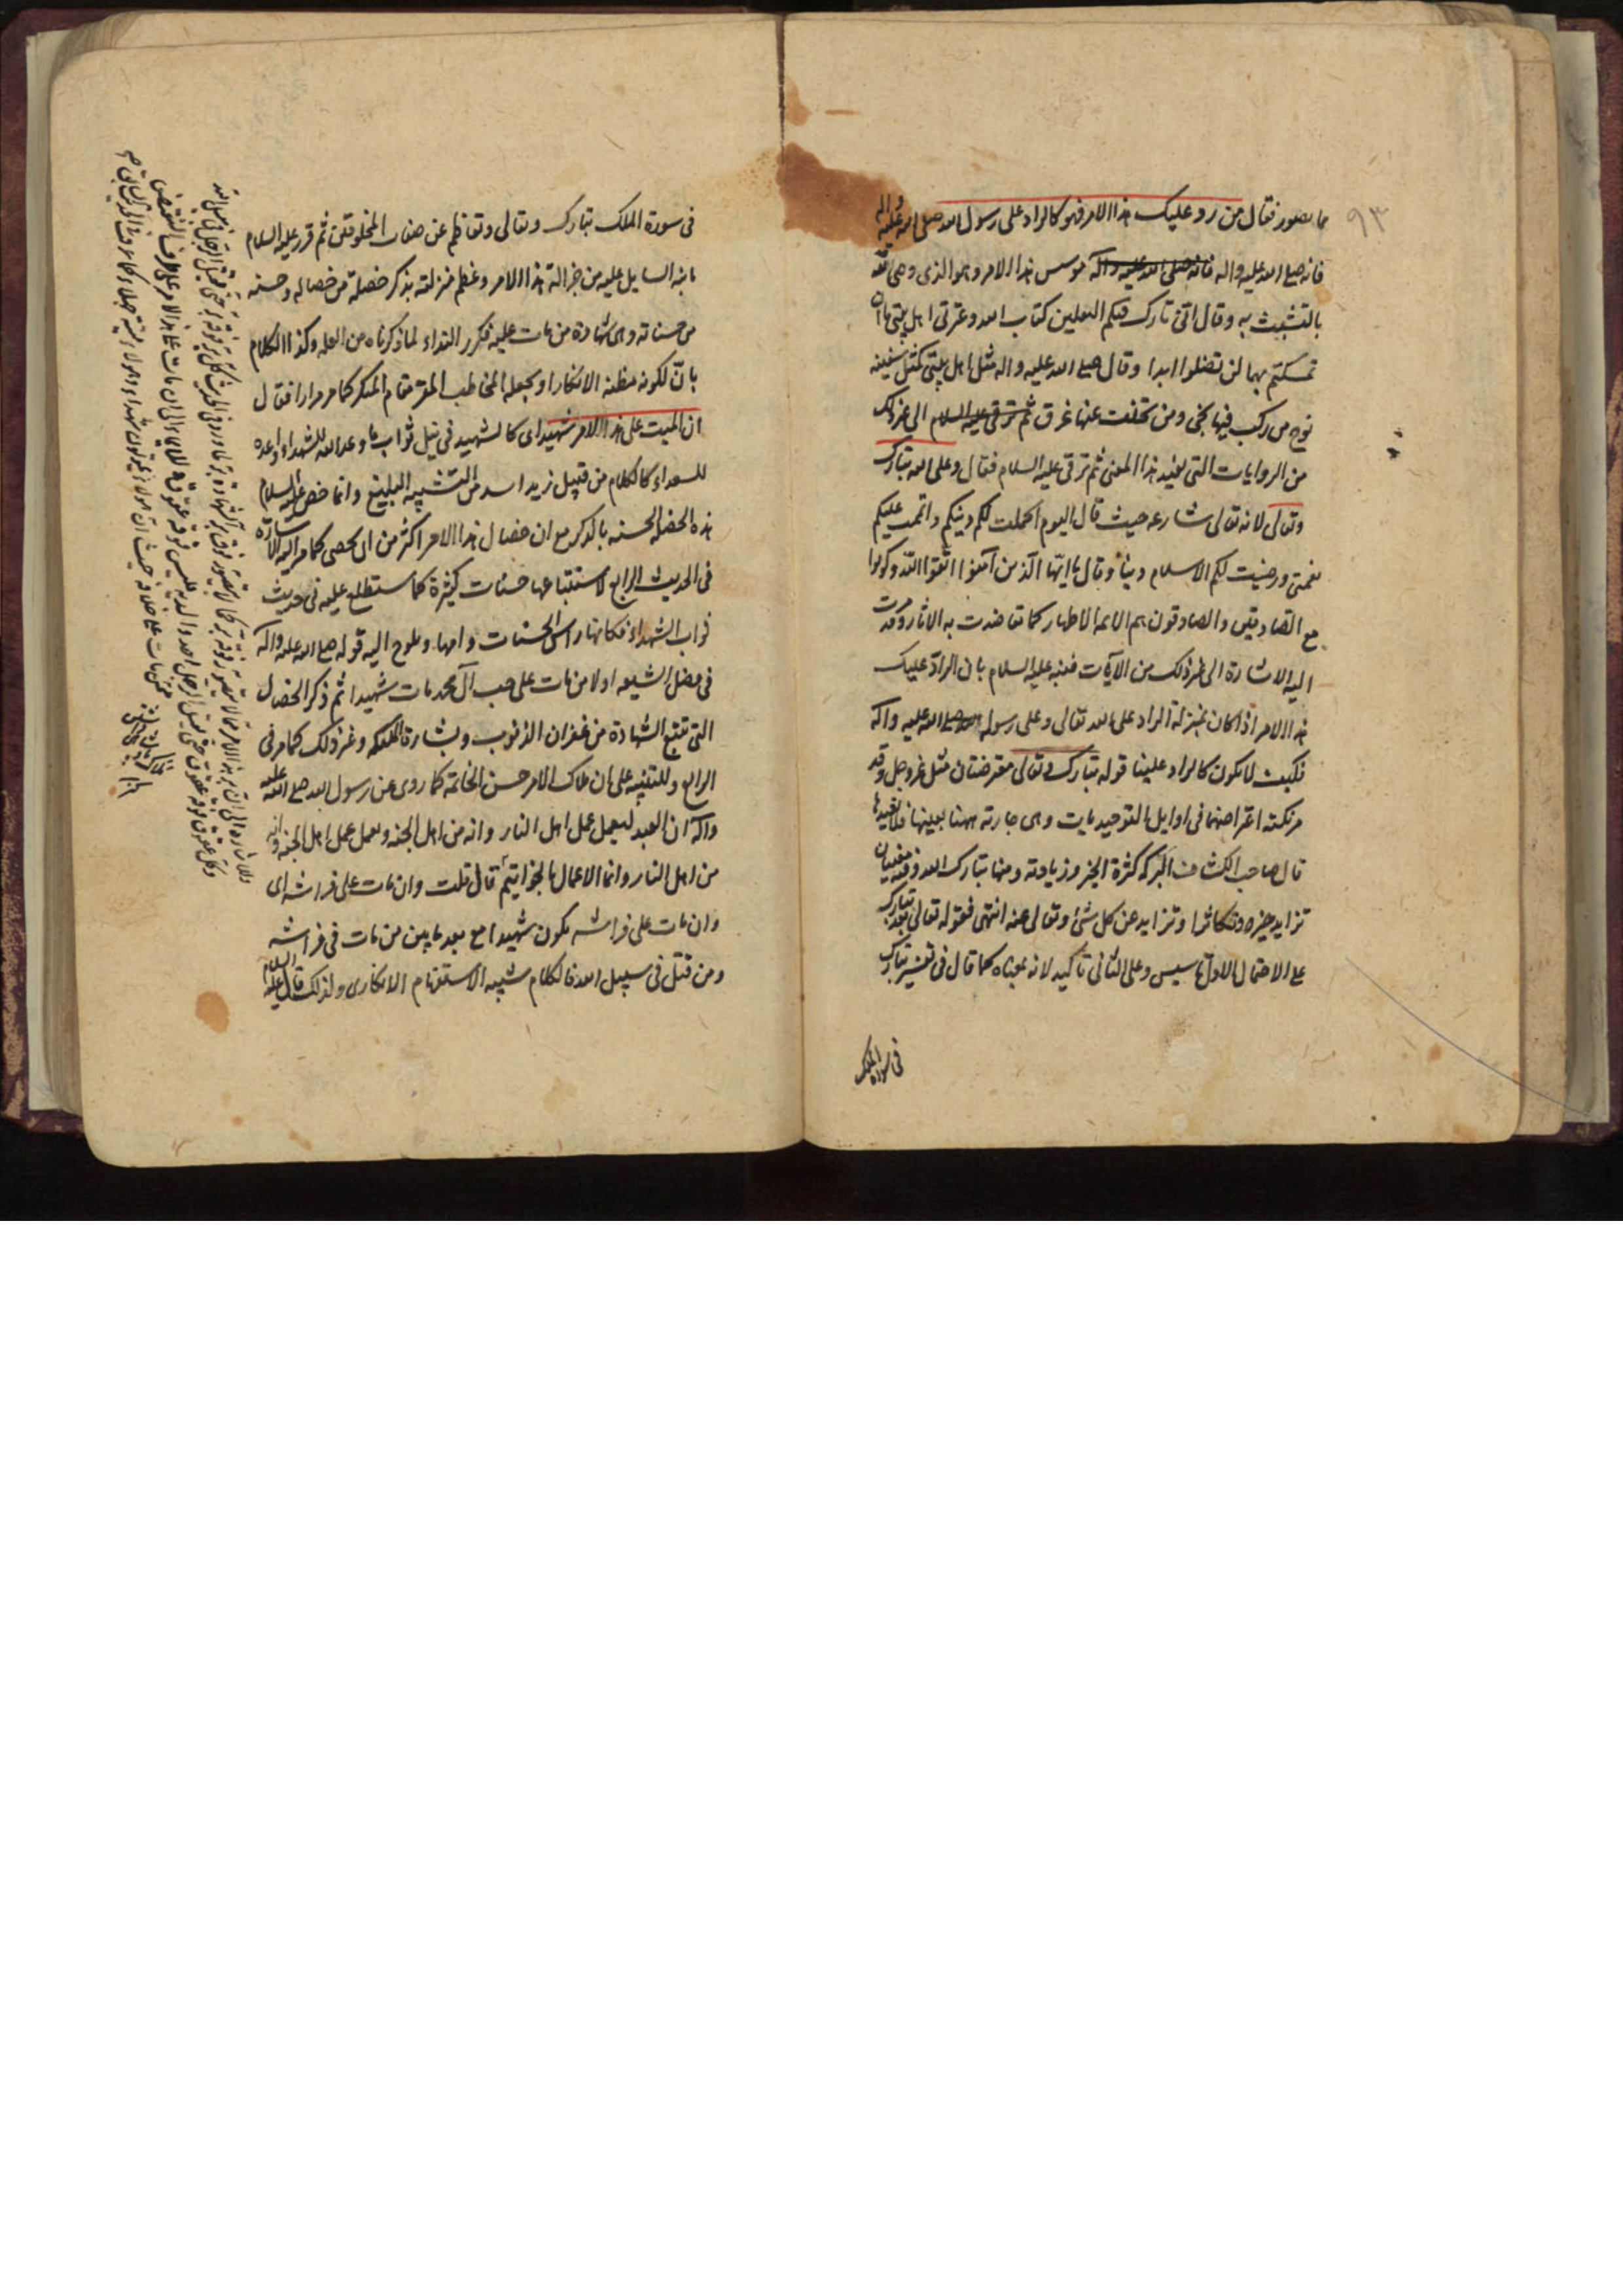 ٩٣
مما تصور فقال من رد عليك هذا الامر فهو كالراد على رسول الله صلى الله عليه واله
فانه صلى الله عليه واله فانه صلى الله عليه واله موسس هذا الامر وهو الذى وصى الامة
بالتشبث به وقال انى تارك فيكم الثقلين كتاب الله وعترتى اهل بيتى ما ان
تمسكتم بهما لن تضلوا ابدا وقال صلى الله عليه واله مثل اهل بيتى كمثل سفينة
نوح من ركب فيها نجى ومن تخلف عنها غرق ثم ترقى عليه السلام الى غير ذلك
من الروايات التى تفيد هذا المعنى ثم ترقى عليه السلام فقال وعلى الله تبارك
وتعالى لانه تعالى شارعه حيث قال اليوم اكملت لكم دينكم واتممت عليكم
نعمتى ورضيت لكم الاسلام دينا وقال يا ايها الذين آمنوا اتقوا الله وكونوا
مع الصادقين والصادقون هم الائمه الاطهار كما تعاضدت به الاثار وقد مرت
اليه الاشارة الى غير ذلك من الآيات فنبه عليه السلام بان الراد عليك
هذا الامر اذا كان بمنزلة الراد على الله تعالى وعلى رسوله صلى الله عليه واله
فكيف لا يكون كالراد علينا قوله تبارك وتعالى معترضتان مثل عز وجل وقد
مر نكتة اعتراضهما فى اوايل التوحيد يات وهى جارته ههنا بعينها فلا نعيدها
قال صاحب الكشاف البركه كثرة الخير وزيادته ومنها تبارك الله وفيه معنيان
تزايد خيره وتكاثر او تزايد عن كل شئ وتعالى عنه انتهى فقوله تعالى بعد تبارك
على الاحتمال الاول تاسيس وعلى الثانى تاكيد لانه بمعناه كما قال فى تفسير تبارك
فى سورة الملك
فى سورة الملك تبارك وتعالى وتعاظم عن صفات المخلوقين ثم قرر عليه السلام
ما نبه السايل عليه من جزالة هذا الامر وعظم منزلته بذكر خصلة من خصاله وحسنه
من حسناته وهى شهادة من مات عليه فكرر النداء لما ذكرناه من العله وكذا الكلام
بان لكونه مظنه الانكار او بجعله المخاطب المقر مقام المنكر كما مر مرارا فقال
ان الميت على هذا الامر شهيد اى كالشهيد فى نيل ثواب ما وعد الله للشهداء واعده
للسعداء كالكلام من قبيل زيد اسد من التشبيه البليغ وانما خص عليه السلام
هذه الخصلة الحسنه بالذكر مع ان خصال هذا الامر اكثر من ان تحصى كما مر اليه الاشارة
فى الحديث الرابع لاستتباعها حسنات كثيرة كما ستطلع عليه فى حديث
ثواب الشهداء فكانها راس الحسنات وامها ويلوح اليه قوله صلى الله عليه واله
فى فضل الشيعه اولا من مات على حب آل محمد مات شهيدا ثم ذكر الخصال
التى تتبع الشهادة من غفران الذنوب وبشارة الملئكه وغير ذلك كما مر فى
الرابع وللتنبيه على ان ملاك الامر حسن الخاتمه كما روى عن رسول الله صلى الله عليه
واله ان العبد ليعمل عمل اهل النار وانه من اهل الجنه ويعمل عمل اهل الجنه وانه
من اهل النار وانما الاعمال بالخواتيم قال قلت وان مات على فراشه اى
وان مات على فراشه يكون شهيدا مع بعد ما بين من مات فى فراشه
ومن قتل فى سبيل الله فالكلام شبيه الاستفهام الانكارى ولذلك قال عليه السلام